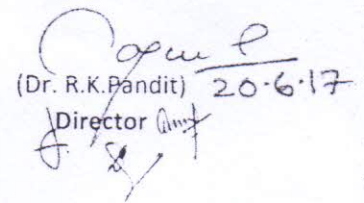 (Dr. R.K.Pandit) 20.6.17
Director